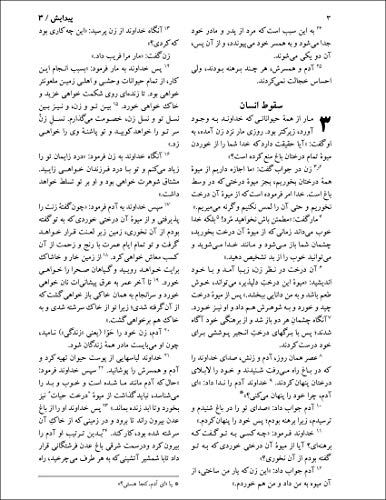 ۳
پیدایش / ۳
۲۴ به این سبب است که مرد از پدر و مادر خود
جدا می‌شود و به همسر خود می‌پیوندد، و از آن پس،
آن دو یکی می‌شوند.
۲۵ آدم و همسرش، هر چند برهنه بودند، ولی
احساس خجالت نمی‌کردند.
سقوط انسان
۳ مار از همهٔ حیواناتی که خداوند به وجود
آورد، زیرکتر بود. روزی مار نزد زن آمده، به
او گفت: «آیا حقیقت دارد که خدا شما را از خوردن
میوهٔ تمام درختان باغ منع کرده است؟»
۲ زن در جواب گفت: «ما اجازه داریم از میوهٔ
همهٔ درختان بخوریم، بجز میوهٔ درختی که در وسط
باغ است. خدا امر فرموده است که از میوهٔ آن درخت
نخوریم و حتی آن را لمس نکنیم وگرنه می‌میریم.»
۴ مار گفت: «مطمئن باش نخواهید مُرد! ۵ بلکه خدا
خوب می‌داند زمانی که از میوهٔ آن درخت بخورید،
چشمان شما باز می‌شود و مانند خدا می‌شوید و
می‌توانید خوب را از بد تشخیص دهید.»
۶ آن درخت در نظر زن، زیبا آمد و با خود
اندیشید: «میوهٔ این درخت دلپذیر، می‌تواند، خوش
طعم باشد و به من دانایی ببخشد.» پس از میوهٔ درخت
چید و خورد و به شوهرش هم داد و او نیز خورد.
۷ آنگاه چشمان هر دو باز شد و از برهنگی خود آگاه
شدند؛ پس با برگهای درخت انجیر پوششی برای
خود درست کردند.
۸ عصر همان روز، آدم و زنش، صدای خداوند را
که در باغ راه می‌رفت شنیدند و خود را لابلای
درختان پنهان کردند. ۹ خداوند آدم را ندا داد: «ای
آدم، چرا خود را پنهان می‌کنی؟»*
۱۰ آدم جواب داد: «صدای تو را در باغ شنیدم و
ترسیدم، زیرا برهنه بودم؛ پس خود را پنهان کردم.»
۱۱ خداوند فرمود: «چه کسی به تو گفت که
برهنه‌ای؟ آیا از میوهٔ آن درختی خوردی که به تو
گفته بودم از آن نخوری؟»
۱۲ آدم جواب داد: «این زن که یار من ساختی، از
آن میوه به من داد و من هم خوردم.»
۱۳ آنگاه خداوند از زن پرسید: «این چه کاری بود
که کردی؟»
زن گفت: «مار مرا فریب داد.»
۱۴ پس خداوند به مار فرمود: «بسبب انجام این
کار، از تمام حیوانات وحشی و اهلی زمین ملعونتر
خواهی بود. تا زنده‌ای روی شکمت خواهی خزید و
خاک خواهی خورد. ۱۵ بین تو و زن، و نیز بین
نسل تو و نسل زن، خصومت می‌گذارم. نسل زن
سر تو را خواهد کوبید و تو پاشنهٔ وی را خواهی
زد.»
۱۶ آنگاه خداوند به زن فرمود: «درد زایمان تو را
زیاد می‌کنم و تو با درد فرزندان خواهی زایید.
مشتاق شوهرت خواهی بود و او بر تو تسلط خواهد
داشت.»
۱۷ سپس خداوند به آدم فرمود: «چون گفتهٔ زنت را
پذیرفتی و از میوهٔ آن درختی خوردی که به تو گفته
بودم از آن نخوری، زمین زیر لعنت قرار خواهد
گرفت و تو تمام ایام عمرت با رنج و زحمت از آن
کسب معاش خواهی کرد. ۱۸ از زمین خار و خاشاک
برایت خواهد رویید و گیاهان صحرا را خواهی
خورد. ۱۹ تا آخر عمر به عرق پیشانی‌ات نان خواهی
خورد و سرانجام به همان خاکی باز خواهی گشت که
از آن گرفته شدی؛ زیرا تو از خاک سرشته شدی و به
خاک هم برخواهی گشت.»
۲۰ آدم، زن خود را حوّا (یعنی «زندگی») نامید،
چون او می‌بایست مادر همهٔ زندگان شود.
۲۱ خداوند لباسهایی از پوست حیوان تهیه کرد و
آدم و همسرش را پوشانید. ۲۲ سپس خداوند فرمود:
«حال که آدم مانند ما شده است و خوب و بد را
می‌شناسد، نباید گذاشت از میوهٔ "درخت حیات" نیز
بخورد و تا ابد زنده بماند.» ۲۳ پس خداوند او را از باغ
عدن بیرون راند تا برود و در زمینی که از خاک آن
سرشته شده بود، کار کند. ۲۴ بدین ترتیب او آدم را
بیرون کرد و در سمت شرقی باغ عدن فرشتگانی قرار
داد تا با شمشیر آتشینی که به هر طرف می‌چرخید، راه
* یا «ای آدم، کجا هستی؟»